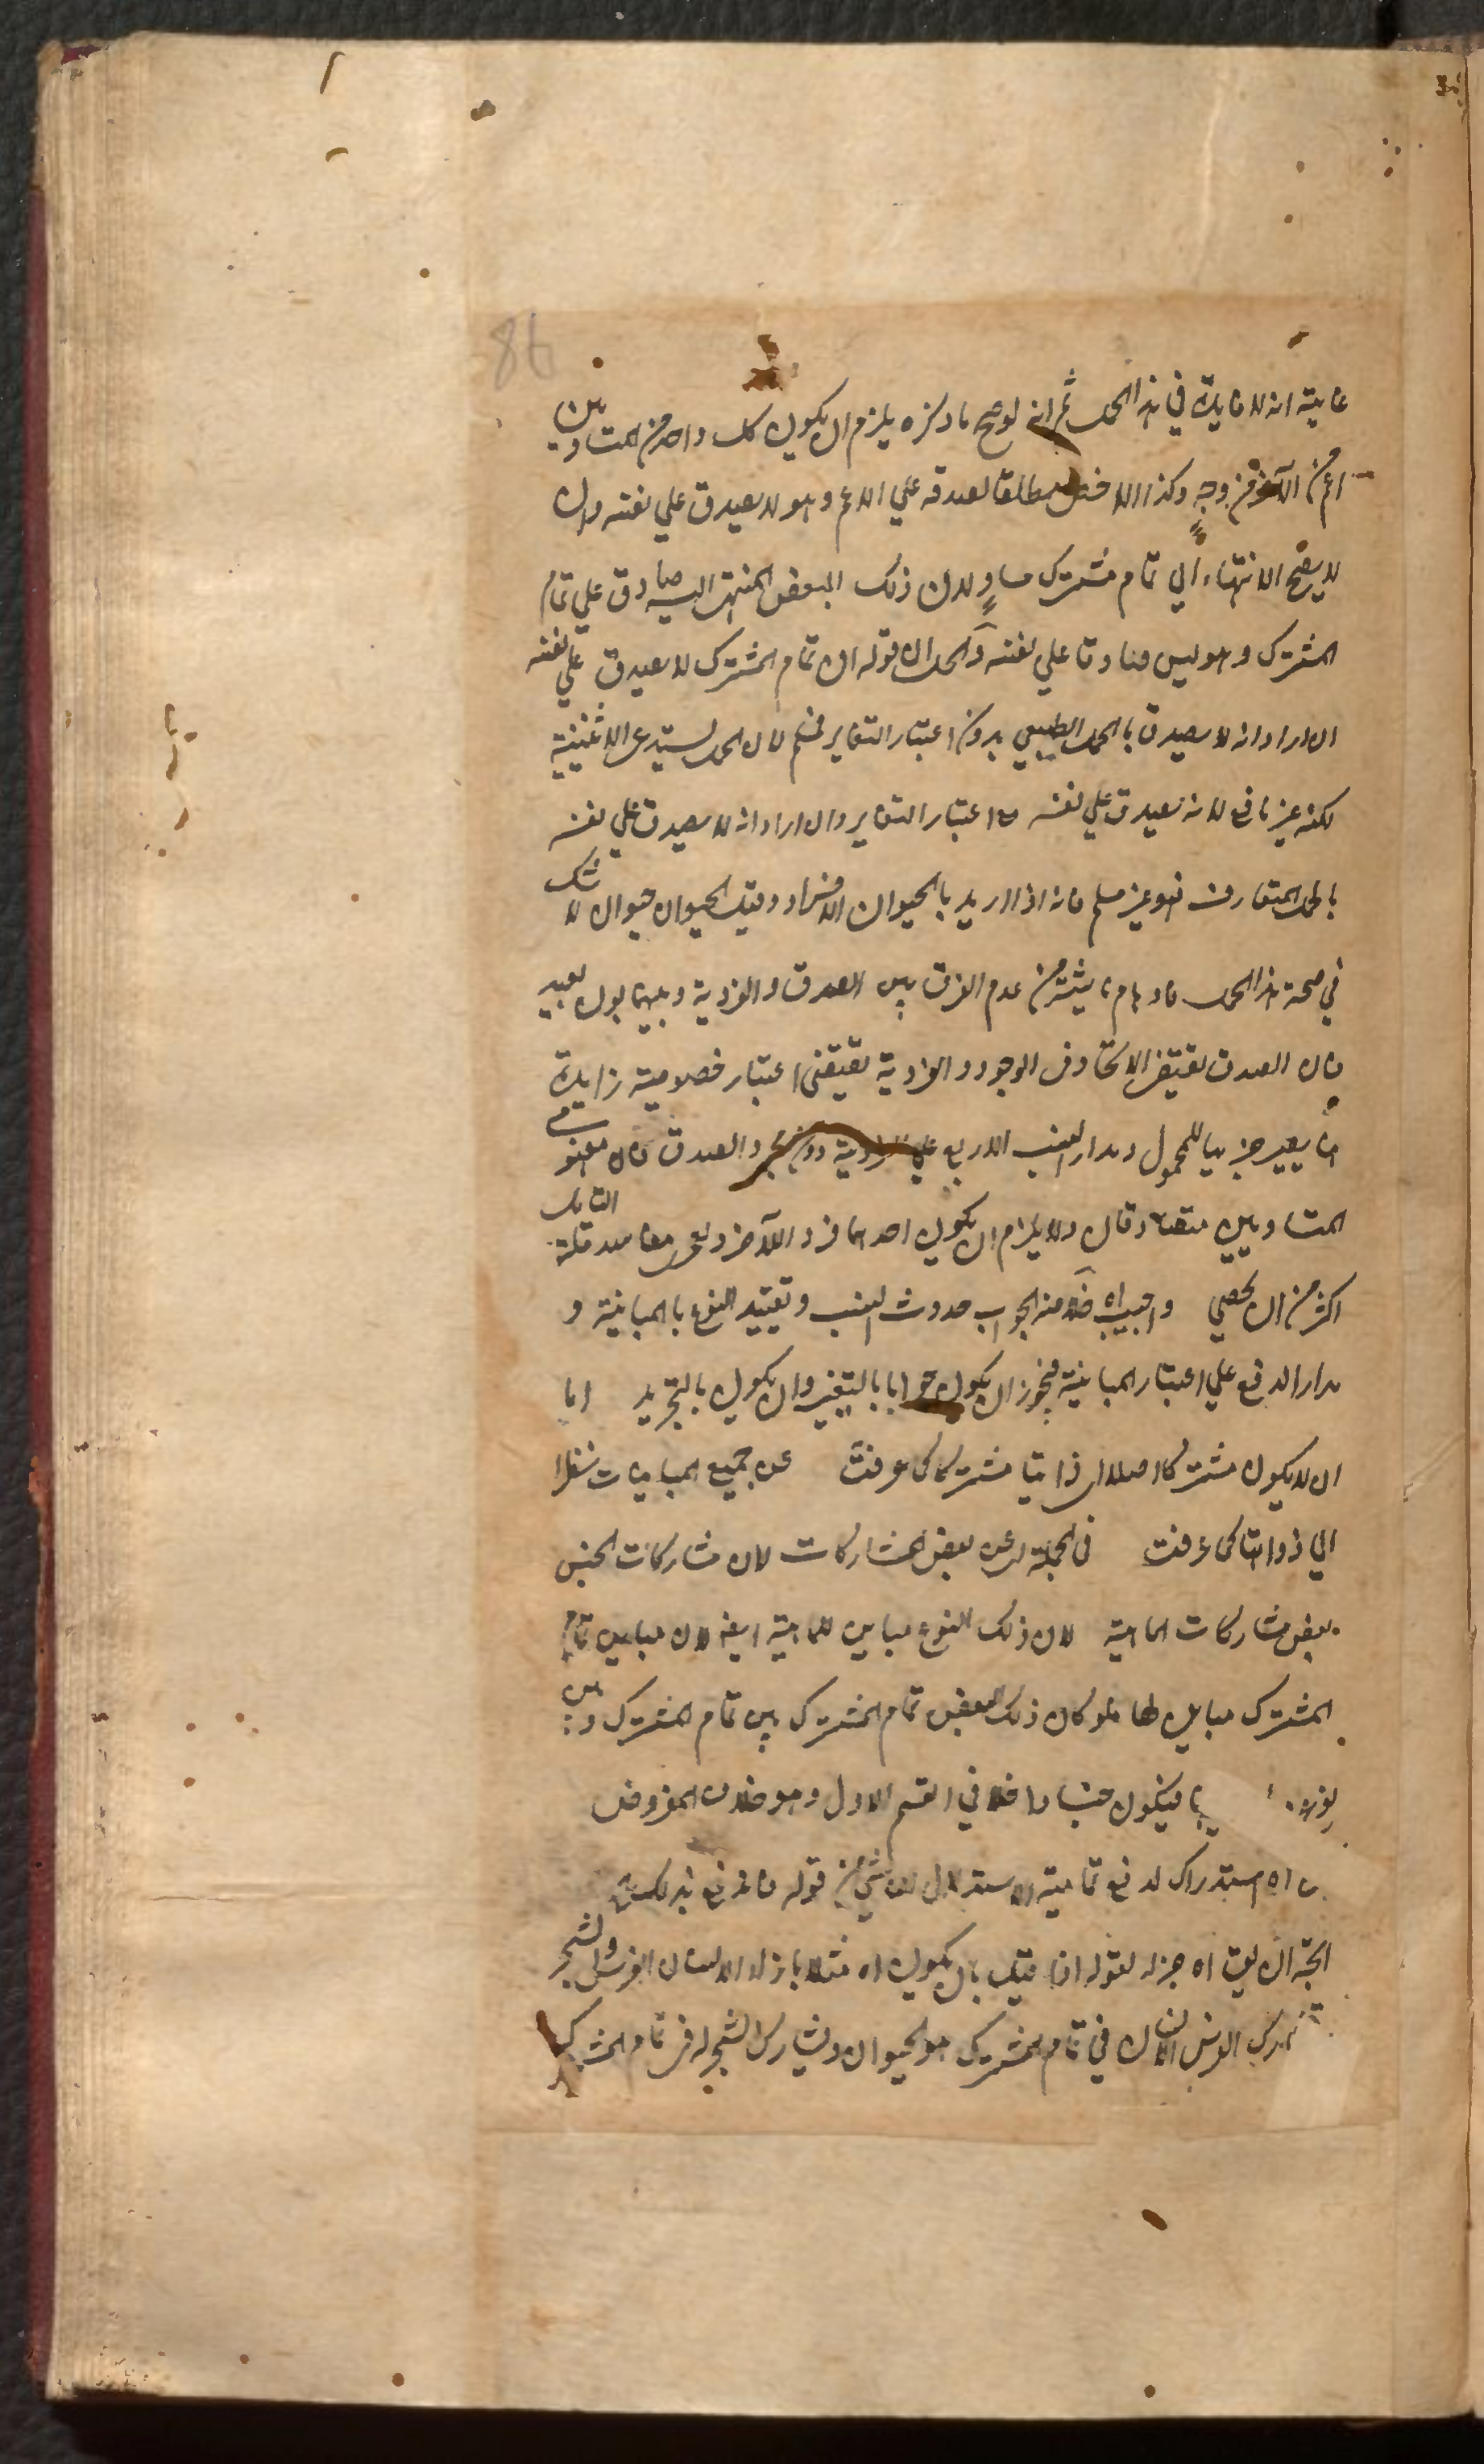 86
غايته انه لا فايدة في هذا الحمل ثم انه لو صح ما ذكره يلزم ان يكون كل واحد من المتساويين
اعم من الآخر من وجه وكذا الاخص مطلقا لصدقه علي الاعم وهو لا يصدق علي نفسه وان
لا يصح الانتهاء الي تمام مشترك مساو لان ذلك البعض المنتهي اليه صادق علي تمام
المشترك وهو ليس صادقا علي نفسه والحل ان قوله ان تمام المشترك لا يصدق علي نفسه
ان اراد انه لا يصدق بالحمل الطبيعي بدون اعتبار التغاير فمسلم لان الحمل يستدعي الاثنينية
لكنه غير نافع لانه يصدق علي نفسه مع اعتبار التغاير وان اراد انه لا يصدق علي نفسه
بالحمل المتعارف فهو غير مسلم فانه اذا اريد بالحيوان الافراد وقيل الحيوان حيوان لا شك
في صحة هذا الحمل فاوهام ناشئة من عدم الفرق بين الصدق والفردية وبينهما بون بعيد
فان الصدق يقتضي الاتحاد في الوجود والفردية يقتضي اعتبار خصوصية زايدة
بها يصير جزئيا للمحمول ومدار النسب الاربع علي الفردية دون مجرد الصدق فان مفهومي
المتساويين متصادقان ولا يلزم ان يكون احدهما فرد الآخر ومفاسد قلة التامل
اكثر من ان يحصي واجيب اه خلاصة الجواب حدوث النسب وتقييد النوع بالمباينة و
مدار الدفع علي اعتبار المباينة فيجوز ان يكون جوابا بالتغيير وان يكون بالتحرير اما
ان لا يكون مشتركا اصلا اي ذاتيا مشتركا كما عرفت عن جميع المباينات نظرا
الي ذواتها كما عرفت في الجملة اي عن بعض المشاركات لان مشاركات الجنس
بعض مشاركات الماهية لان ذلك النوع مباين للماهية ايضا لان مباين تمام
المشترك مباين لها فلو كان ذلك البعض تمام المشترك بين تمام المشترك وبين
فيكون جنسا داخلا في القسم الاول وهو خلاف المفروض
اه استدراك لدفع تمامية الاستدلال الناشي من قوله فاندفع بذلك
الجنة ان ليت اه جزاء لقوله اذا قيل بان يكون اه مثلا بازاء الانسان الفرس والشجر
يشارك الفرس الانسان في تمام المشترك هو الحيوان ويشارك الشجر له في تمام المشترك